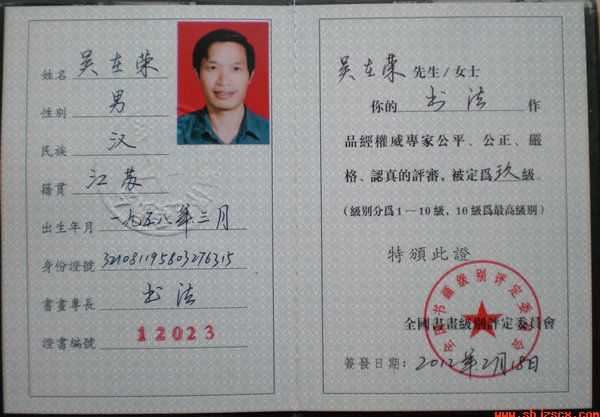 姓名 吴在荣
性别 男
民族 汉
籍貫 江苏
出生年月 一九五八年三月
身份證號 321081195803276315
書畫專長 书法
證書編號 12023
吴在荣 先生/女士
你的 书法 作
品經權威專家公平、公正、嚴
格、認真的評審，被定爲 玖 級。
(級别分爲1—10級，10級爲最高級别)
特頒此證
全国书画级别评定委员会
全國書畫級别評定委員會
簽發日期：2012年2月18日
www.shjzscx.com